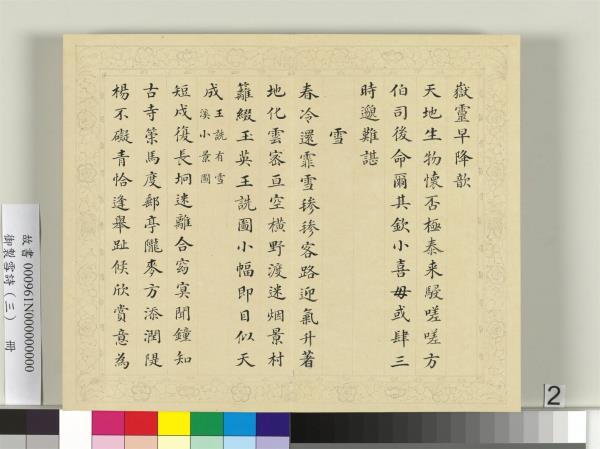 嶽靈早降歆
天地生物懷否極泰来駸嗟嗟方
伯司後命爾其欽小喜毋或肆三
時邈難諶
雪
春冷還霏雪毿毿客路迎氣升著
地化雲密亘空橫野渡迷烟景村
籬綴玉英王詵圖小幅即目似天
成王詵有雪溪小景圖
短戍復長坰迷離合窈冥聞鐘知
古寺策馬度郵亭隴麥方添潤隄
楊不礙青恰逢舉趾候欣賞意為
故書 000961N000000000
御製雪詩（三） 冊
2